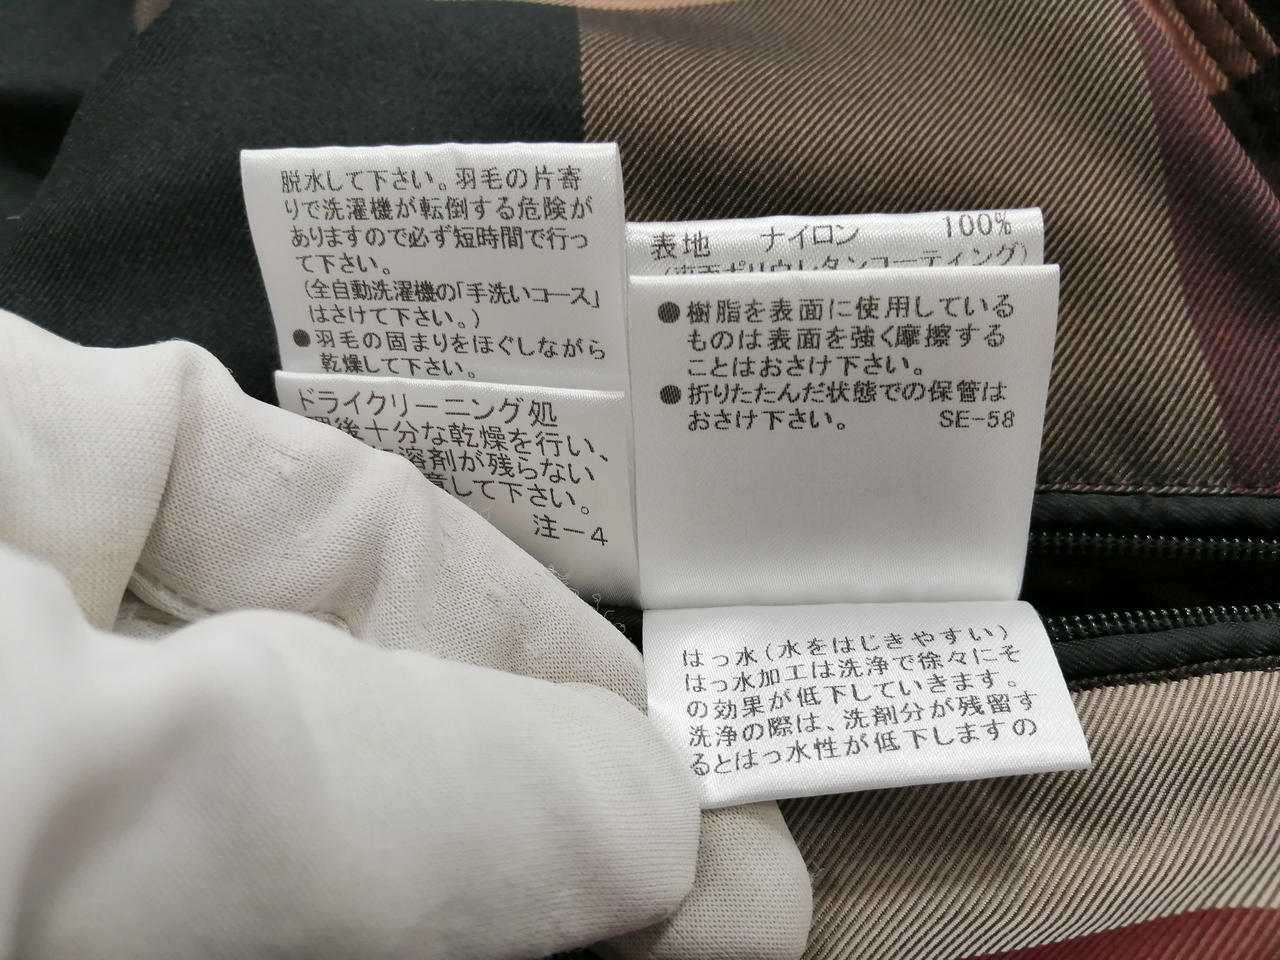 脱水して下さい。羽毛の片寄
りで洗濯機が転倒する危険が
ありますので必ず短時間で行っ
て下さい。
(全自動洗濯機の「手洗いコース」
はさけて下さい。)
●羽毛の固まりをほぐしながら
乾燥して下さい。
ドライクリーニング処
後十分な乾燥を行い、
溶剤が残らない
意して下さい。
注-4
表地 ナイロン 100%
(裏面ポリウレタンコーティング)
●樹脂を表面に使用している
ものは表面を強く摩擦する
ことはおさけ下さい。
●折りたたんだ状態での保管は
おさけ下さい。 SE-58
はっ水(水をはじきやすい)
はっ水加工は洗浄で徐々にそ
の効果が低下していきます。
洗浄の際は、洗剤分が残留す
るとはっ水性が低下しますの